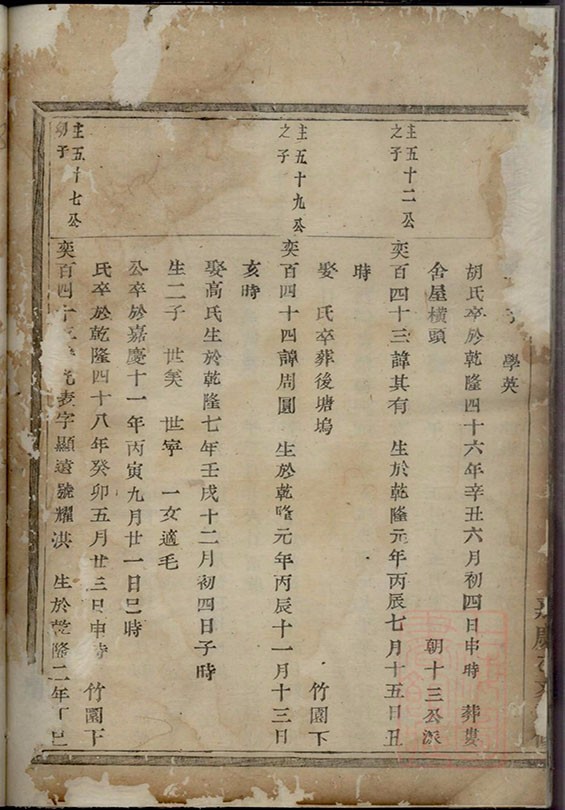 學英
胡氏卒於乾隆四十六年辛丑六月初四日申時 葬
舍屋橫頭 朝十三公派
主五十二公之子
奕百四十三諱其有 生於乾隆元年丙辰七月十五日丑
時
娶 氏卒葬後塘塢 竹園下
主五十九公之子
奕百四十四諱周圓 生於乾隆元年丙辰十一月十三日
亥時
娶高氏生於乾隆七年壬戌十二月初四日子時
生二子 世美 世寧 一女適毛
公卒於嘉慶十一年丙寅九月廿一日巳時
氏卒於乾隆四十八年癸卯五月廿三日申時 竹園下
主五十七公
子
奕百四十 字顯遠號耀洪 生於乾隆二年丁巳